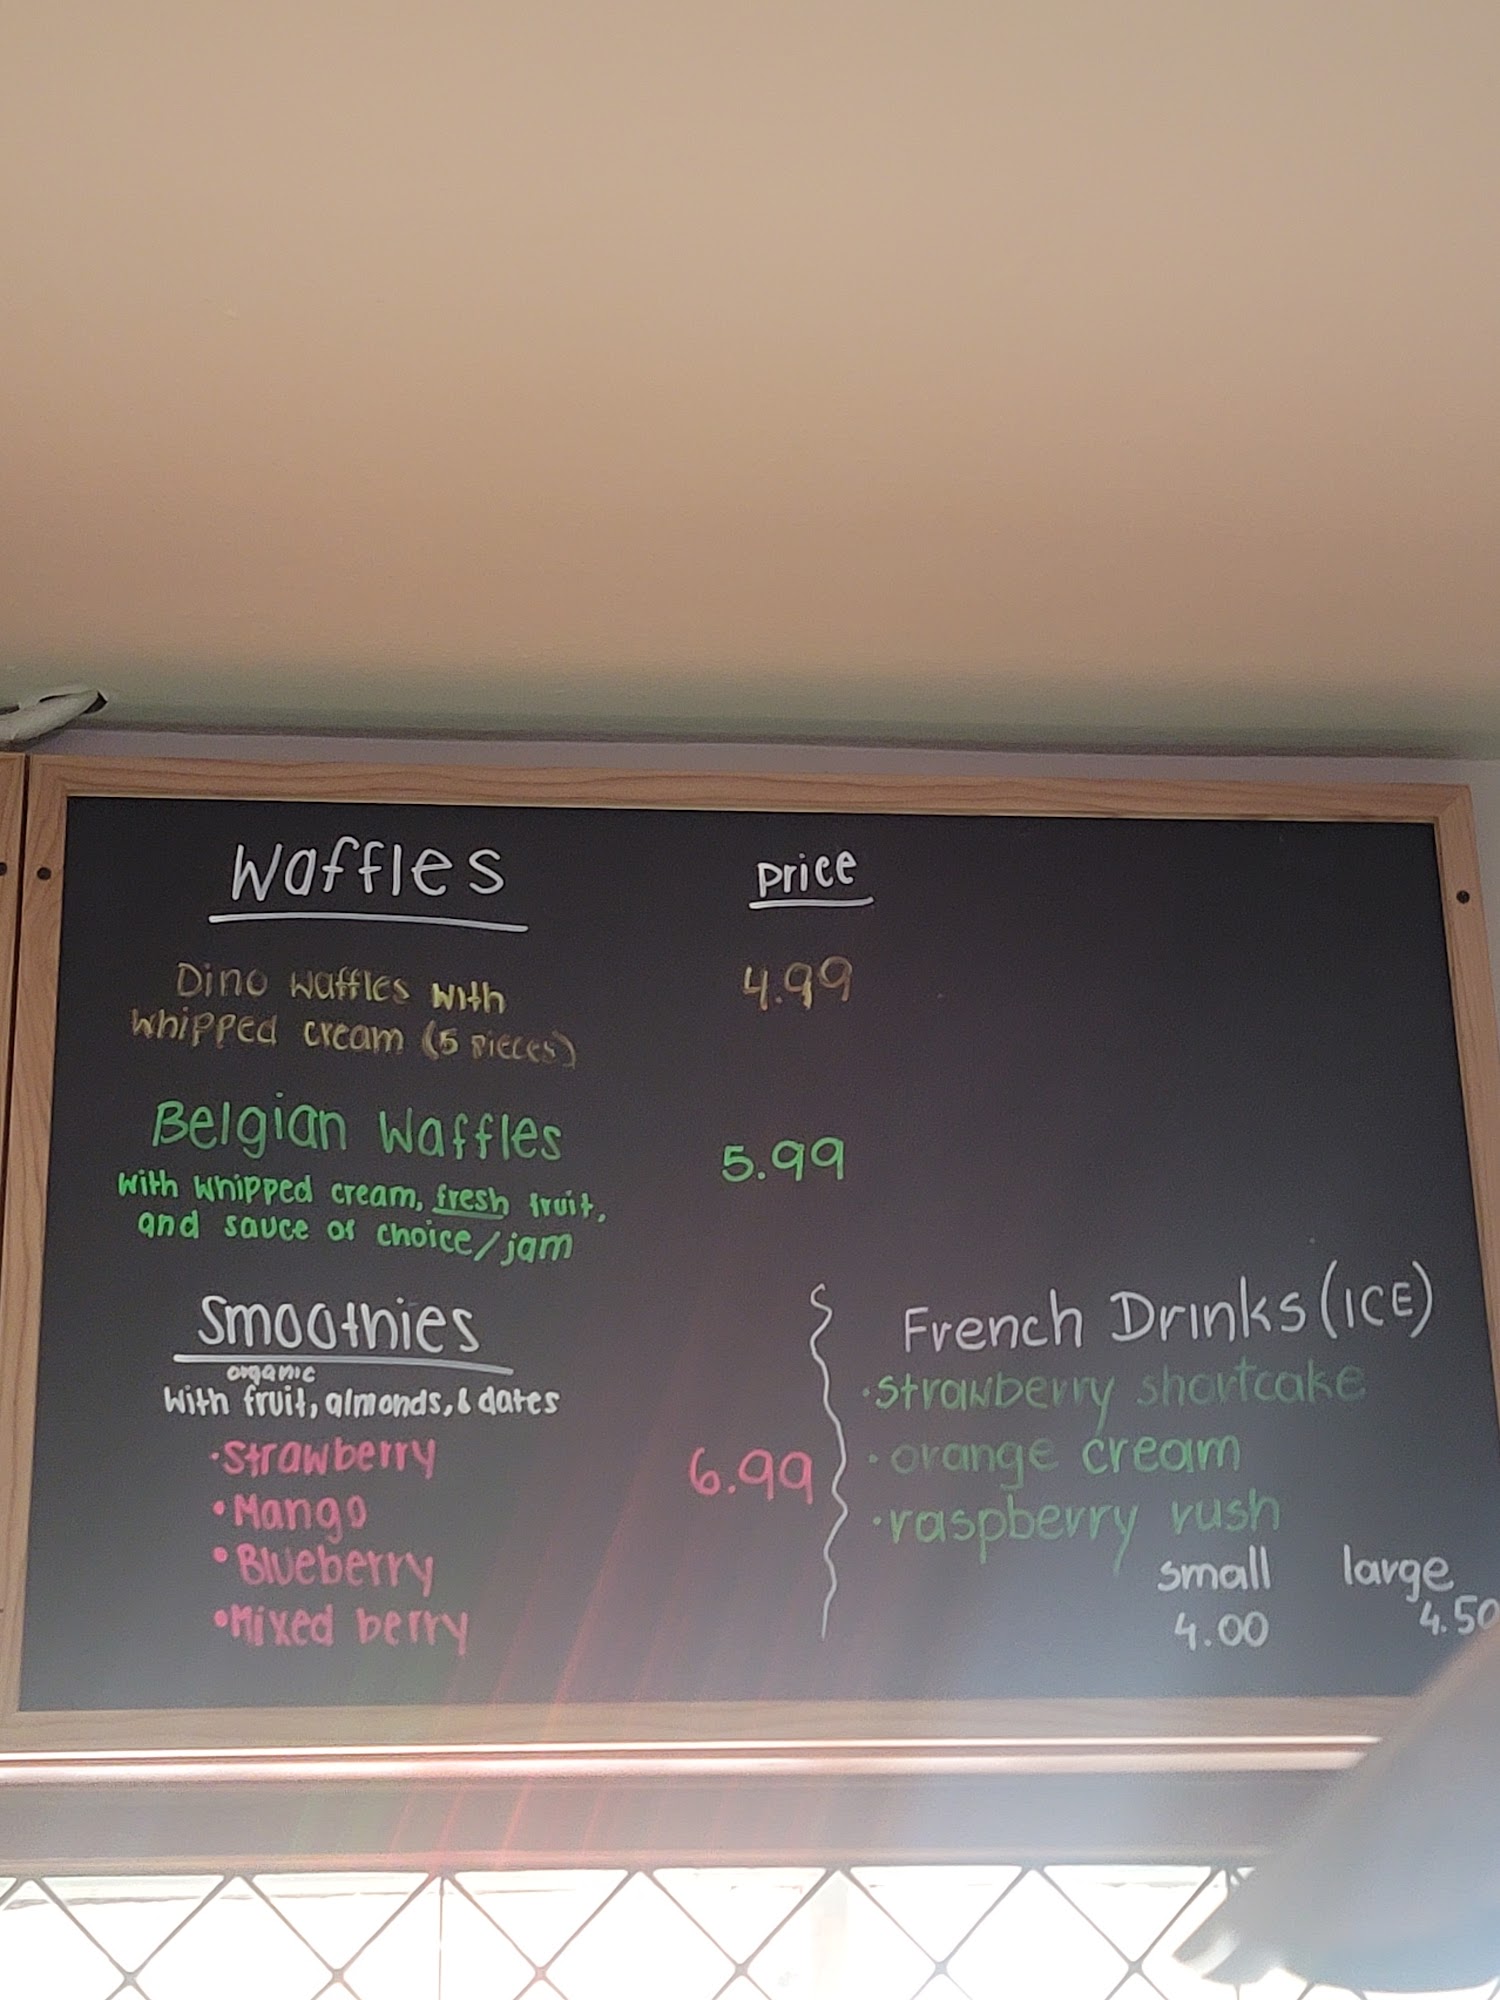 Waffles Price
Dino waffles with 4.99
whipped cream (5 pieces)
Belgian Waffles 5.99
with whipped cream, fresh fruit,
and sauce of choice/jam
Smoothies
organic
with fruit, almonds, & dates
•Strawberry 6.99
•Mango
•Blueberry
•Mixed berry
French Drinks (ICE)
•strawberry shortcake
•orange cream
•raspberry rush
small large
4.00 4.50